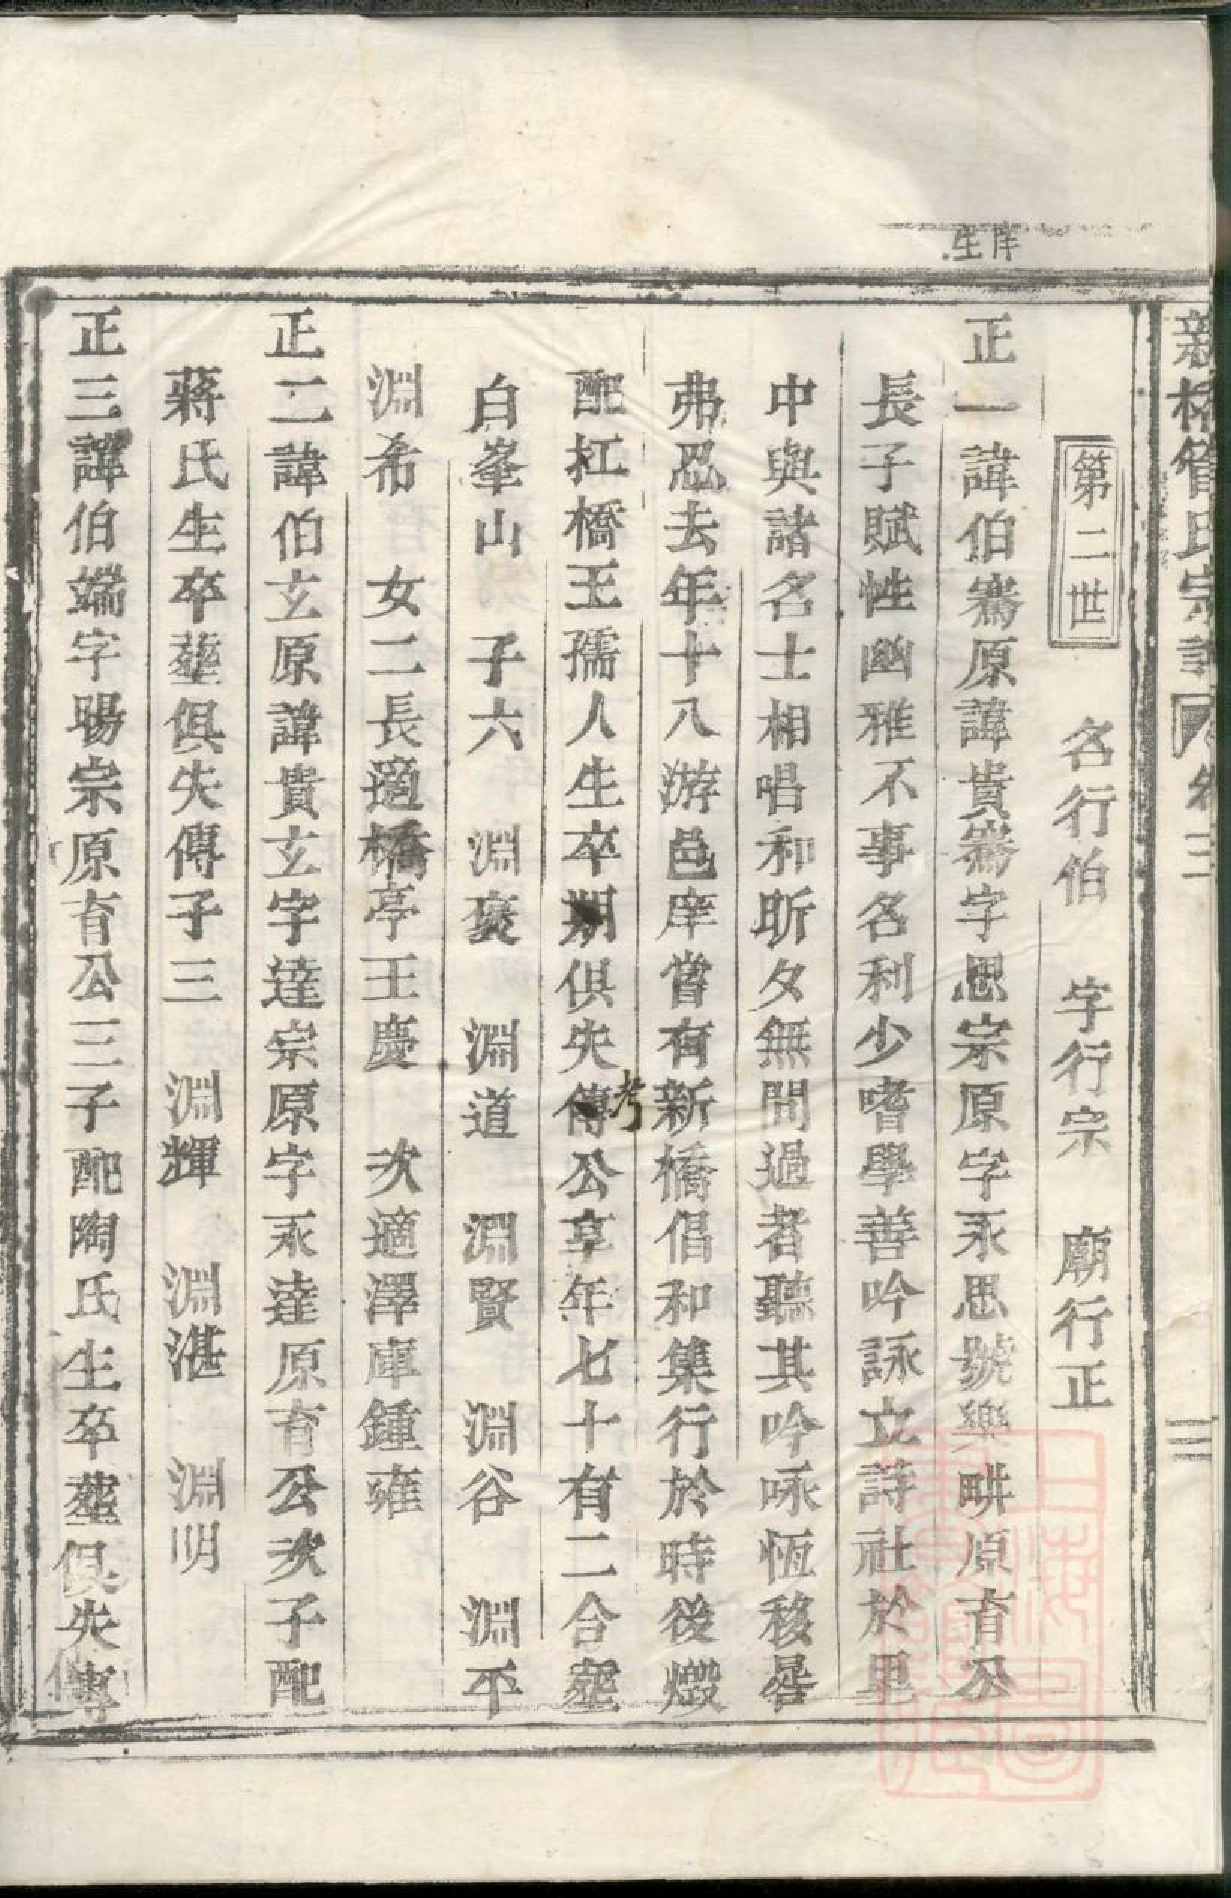 庠生
新橋管氏宗譜 卷三
第二世 名行伯 字行宗 廟行正
正一諱伯騫原諱貴騫字思宗原字永思號樂畊原育公
長子賦性幽雅不事名利少嗜學善吟詠立詩社於里
中與諸名士相唱和昕夕無間過者聽其吟咏恆移晷
弗忍去年十八游邑庠嘗有新橋倡和集行於時後燬
配杠橋王孺人生卒期俱失傳考公享年七十有二合塟
白峯山 子六 淵褒 淵道 淵賢 淵谷 淵平
淵希 女二長適橋亭王慶 次適澤庫鍾雍
正二諱伯玄原諱貴玄字達宗原字永達原育公次子配
蔣氏生卒塟俱失傳子三 淵輝 淵湛 淵明
正三諱伯端字暘宗原育公三子配陶氏生卒塟俱失傳